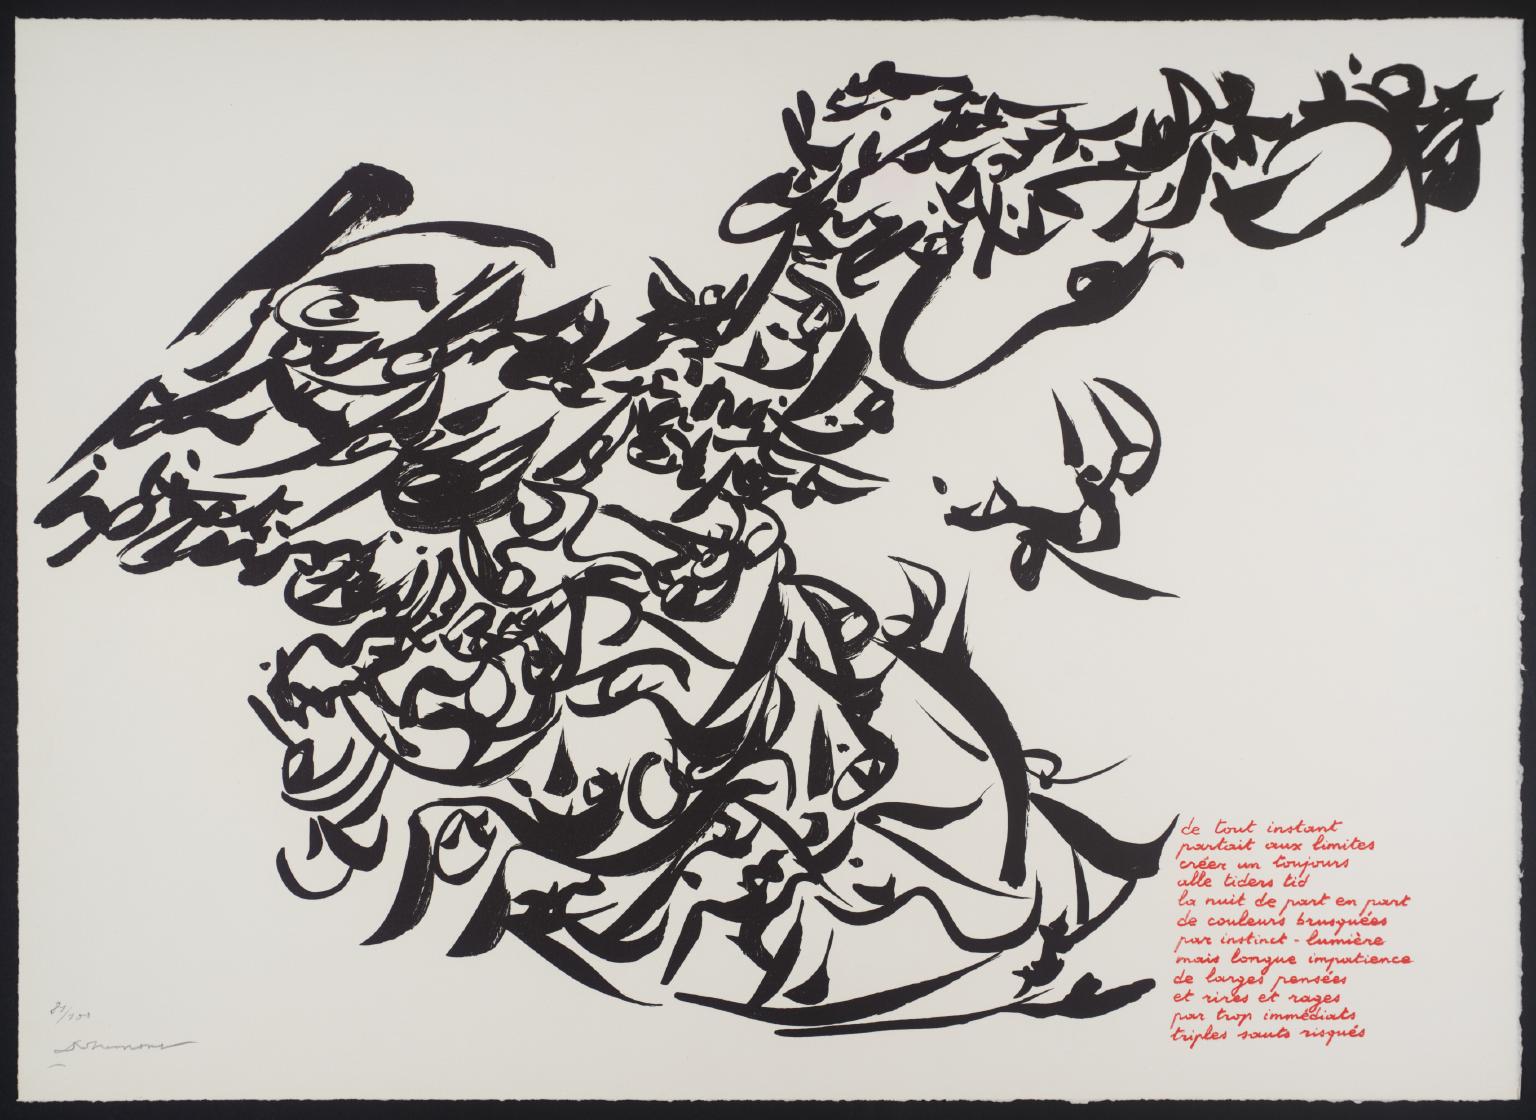 de tout instant
partait aux limites
créer un toujours
alle tiders tid
la nuit de part en part
de couleurs brusquées
par instinct - lumière
mais longue impatience
de larges pensées
et rires et rages
par trop immédiats
triples sauts risqués
81/100